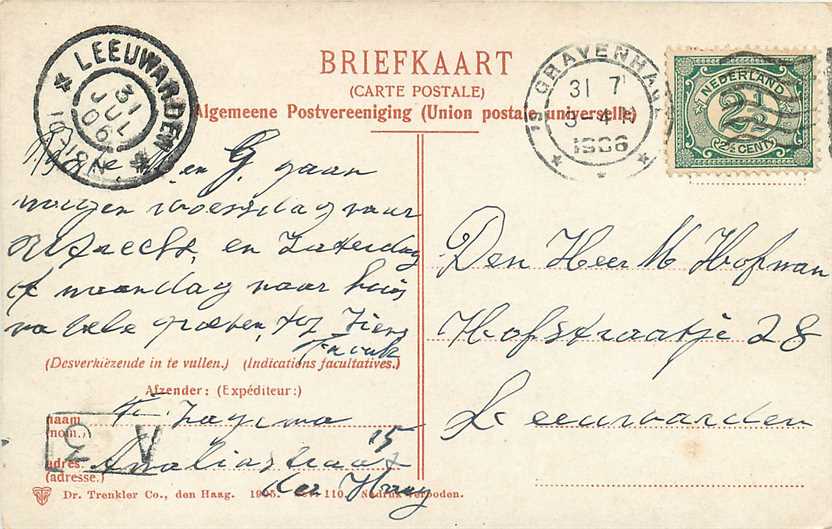 BRIEFKAART
(CARTE POSTALE)
Algemeene Postvereeniging (Union postale universelle)
LEEUWARDEN
31
JUL
06
'S GRAVENHAGE
31 7
3-4
1906
NEDERLAND
2½
2½ CENT
en G. gaan
morgen woensdag naar
Utrecht, en Zaterdag
of maandag naar huis
na vele groeten, tot ziens
(Desverkiezende in te vullen.) (Indications facultatives.)
Afzender: (Expéditeur:)
naam
(nom.)
adres
(adresse.)
Amaliastraat 15
den Haag
Den Heer M Hofman
Hofstraatje 28
Leeuwarden
Dr. Trenkler Co., den Haag. 1905. 110. Nadruk verboden.